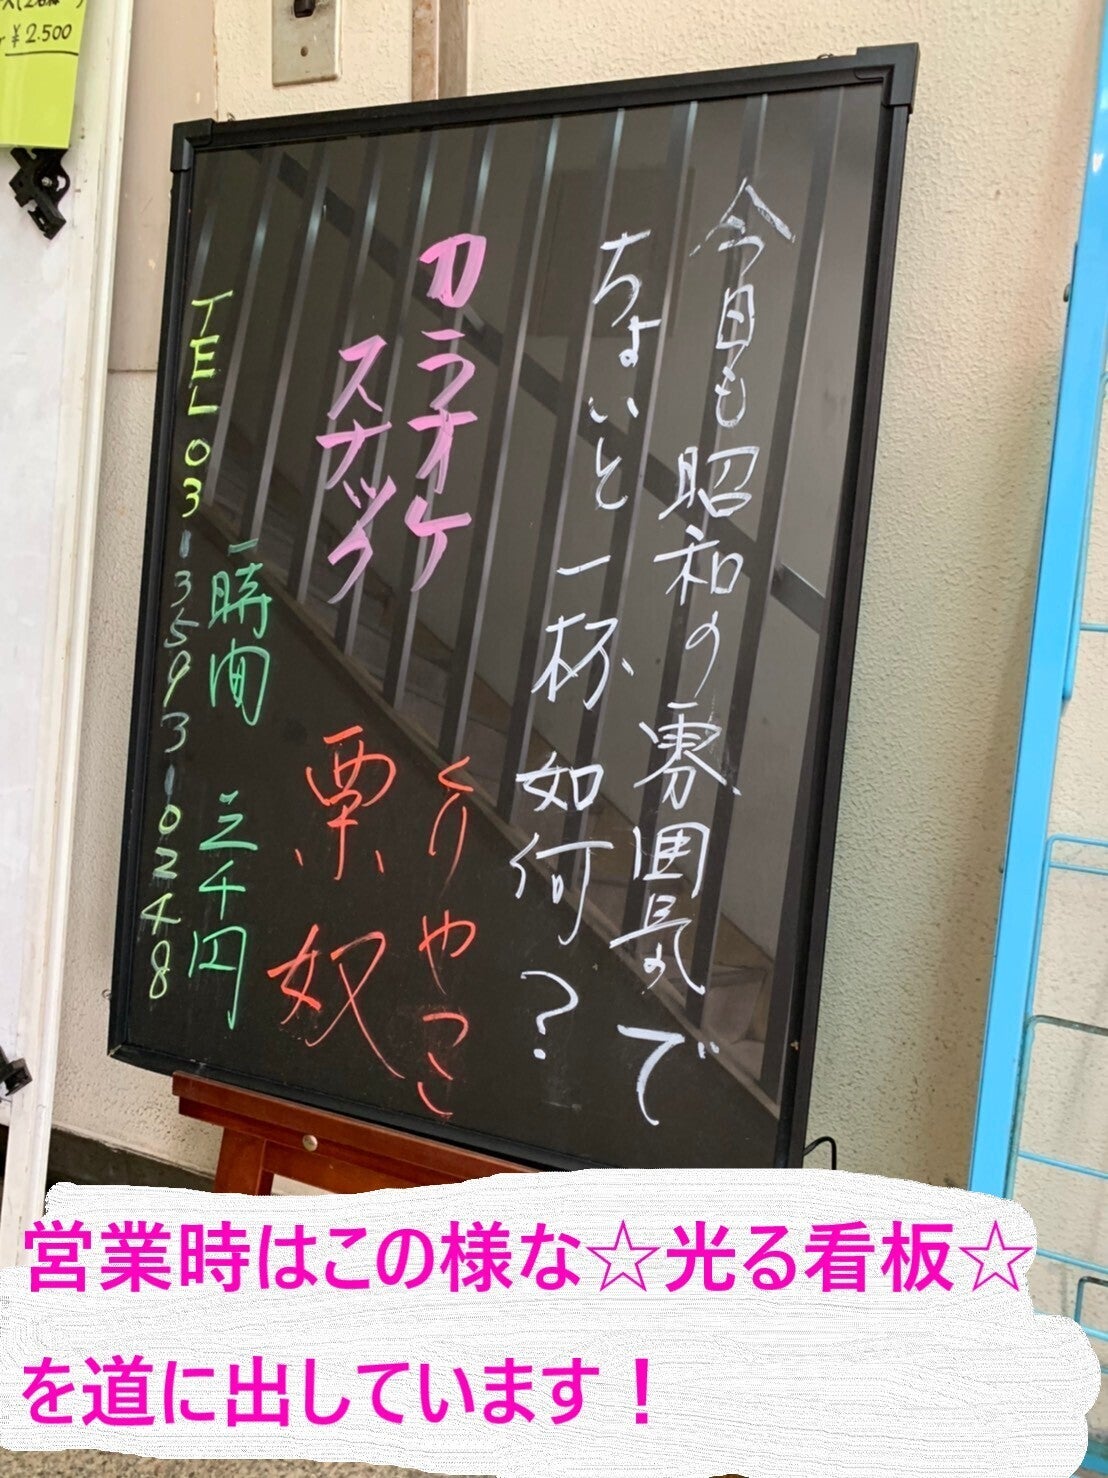 ¥2.500
今日も昭和の雰囲気で
ちょいと一杯如何?
カラオケ
スナック
くりやっこ
栗奴
一時間 三千円
TEL 03-3593-0248
営業時はこの様な☆光る看板☆
を道に出しています！